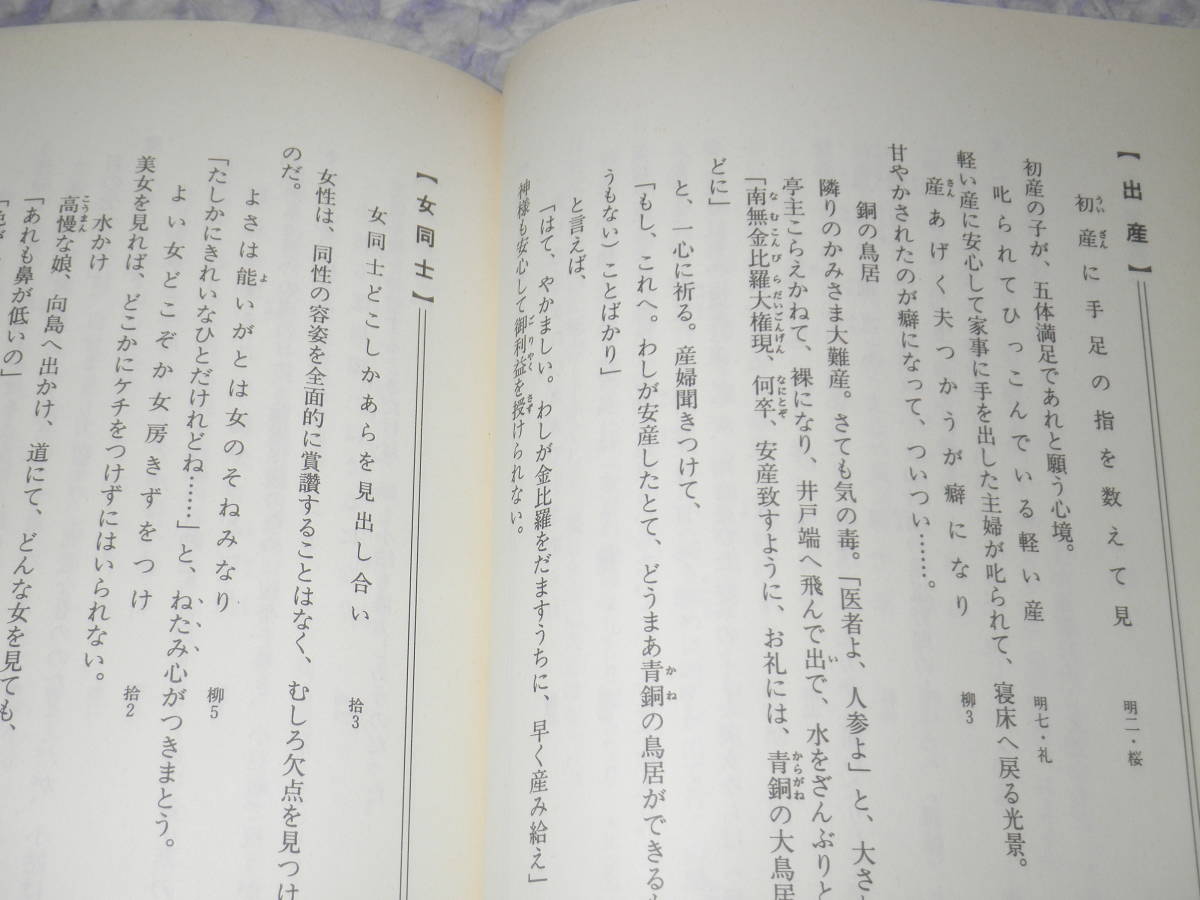 【出産】
初産に手足の指を数えて見　明二・桜
初産の子が、五体満足であれと願う心境。
叱られてひっこんでいる軽い産　明七・礼
軽い産に安心して家事に手を出した主婦が叱られて、寝床へ戻る光景。
産あげく夫つかうが癖になり　柳3
甘やかされたのが癖になって、ついつい……。
銅の鳥居
隣りのかみさま大難産。さても気の毒。「医者よ、人参よ」と、大さ
亭主こらえかねて、裸になり、井戸端へ飛んで出で、水をざんぶりと
「南無金比羅大権現、何卒、安産致すように、お礼には、青銅の大鳥居
どに」
と、一心に祈る。産婦聞きつけて、
「もし、これへ。わしが安産したとて、どうまあ青銅の鳥居ができる
うもない）ことばかり」
と言えば、
「はて、やかましい。わしが金比羅をだますうちに、早く産み給え」
神様も安心して御利益を授けられない。
【女同士】
女同士どこしかあらを見出し合い　拾3
女性は、同性の容姿を全面的に賞讃することはなく、むしろ欠点を見つけ
のだ。
よさは能いがとは女のそねみなり　柳5
「たしかにきれいなひとだけれどね……」と、ねたみ心がつきまとう。
よい女どこぞか女房きずをつけ　拾2
美女を見れば、どこかにケチをつけずにはいられない。
水かけ
高慢な娘、向島へ出かけ、道にて、どんな女を見ても、
「あれも鼻が低いの」